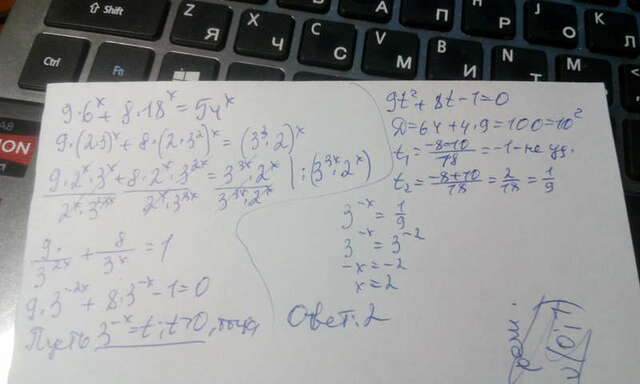 Shift
Z
Я
X
Ч
C
С
V
М
B
И
N
Т
M
Ь
J
О
K
Л
Д
Ctrl
Fn
ION
9·6^x + 8·18^x = 54^x
9·(2·3)^x + 8·(2·3^2)^x = (3^3·2)^x
9·2^x·3^x + 8·2^x·3^{2x} = 3^{3x}·2^x | : (3^{3x}·2^x)
2^x·3^{3x} 2^x·3^{3x} 3^{3x}·2^x
9/3^{2x} + 8/3^x = 1
9·3^{-2x} + 8·3^{-x} - 1 = 0
Пусть 3^{-x} = t, t>0, тогда
9t^2 + 8t - 1 = 0
D = 64 + 4·9 = 100 = 10^2
t_1 = (-8-10)/18 = -1 - не уд.
t_2 = (-8+10)/18 = 2/18 = 1/9
3^{-x} = 1/9
3^{-x} = 3^{-2}
-x = -2
x = 2
Ответ: 2